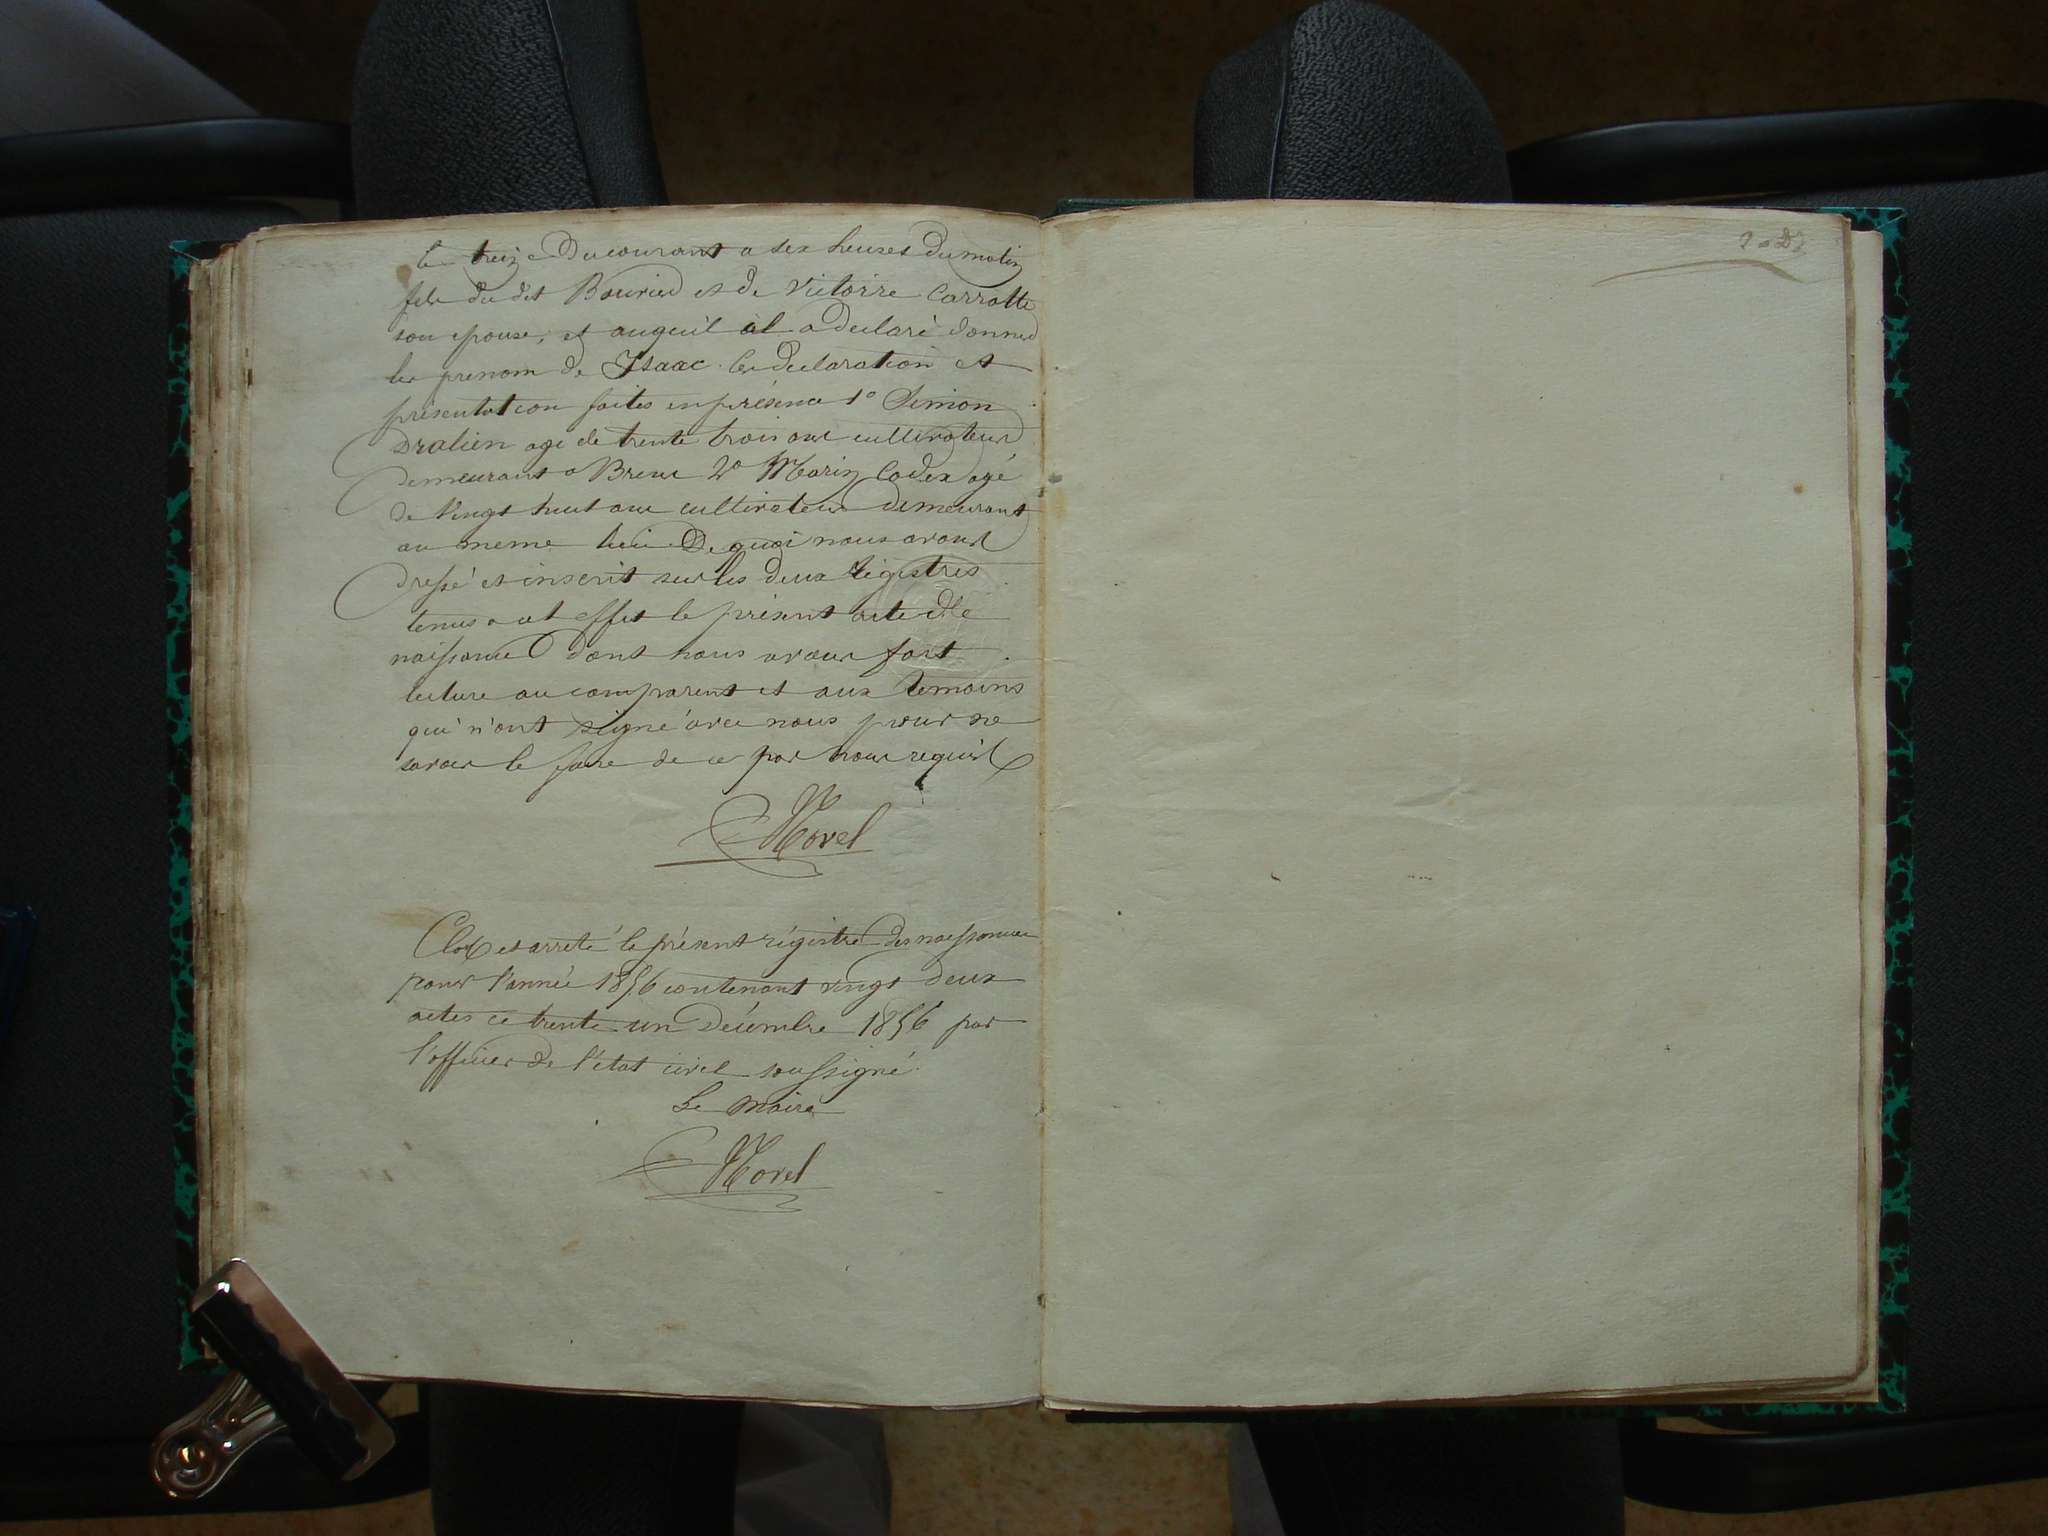 le treize du courant a six heures du matin
fils du dit Bourier et de Victoire Carrotte
son epouse, et auquel il a declaré donner
les prenom de Isaac. Ces declaration et
présentation faites en présence 1° Simon
agé de trente trois ans cultivateur
demeurant a 2° Marin Cadex agé
de vingt huit ans cultivateur demeurant
au meme lieu. De quoi nous avons
dressé et inscrit sur les deux régistres
tenus a cet effet le présent acte de
naissance dont nous avons fait
lecture au comparent et aux temoins
qui n'ont signé avec nous pour ne
savoir le faire de ce par nous requis
Morel
Clos et arreté le présent régistre des naissances
pour l'année 1856 contenant vingt deux
actes ce trente un Décembre 1856 par
l'officier de l'état civil soussigné.
Le Maire
Morel